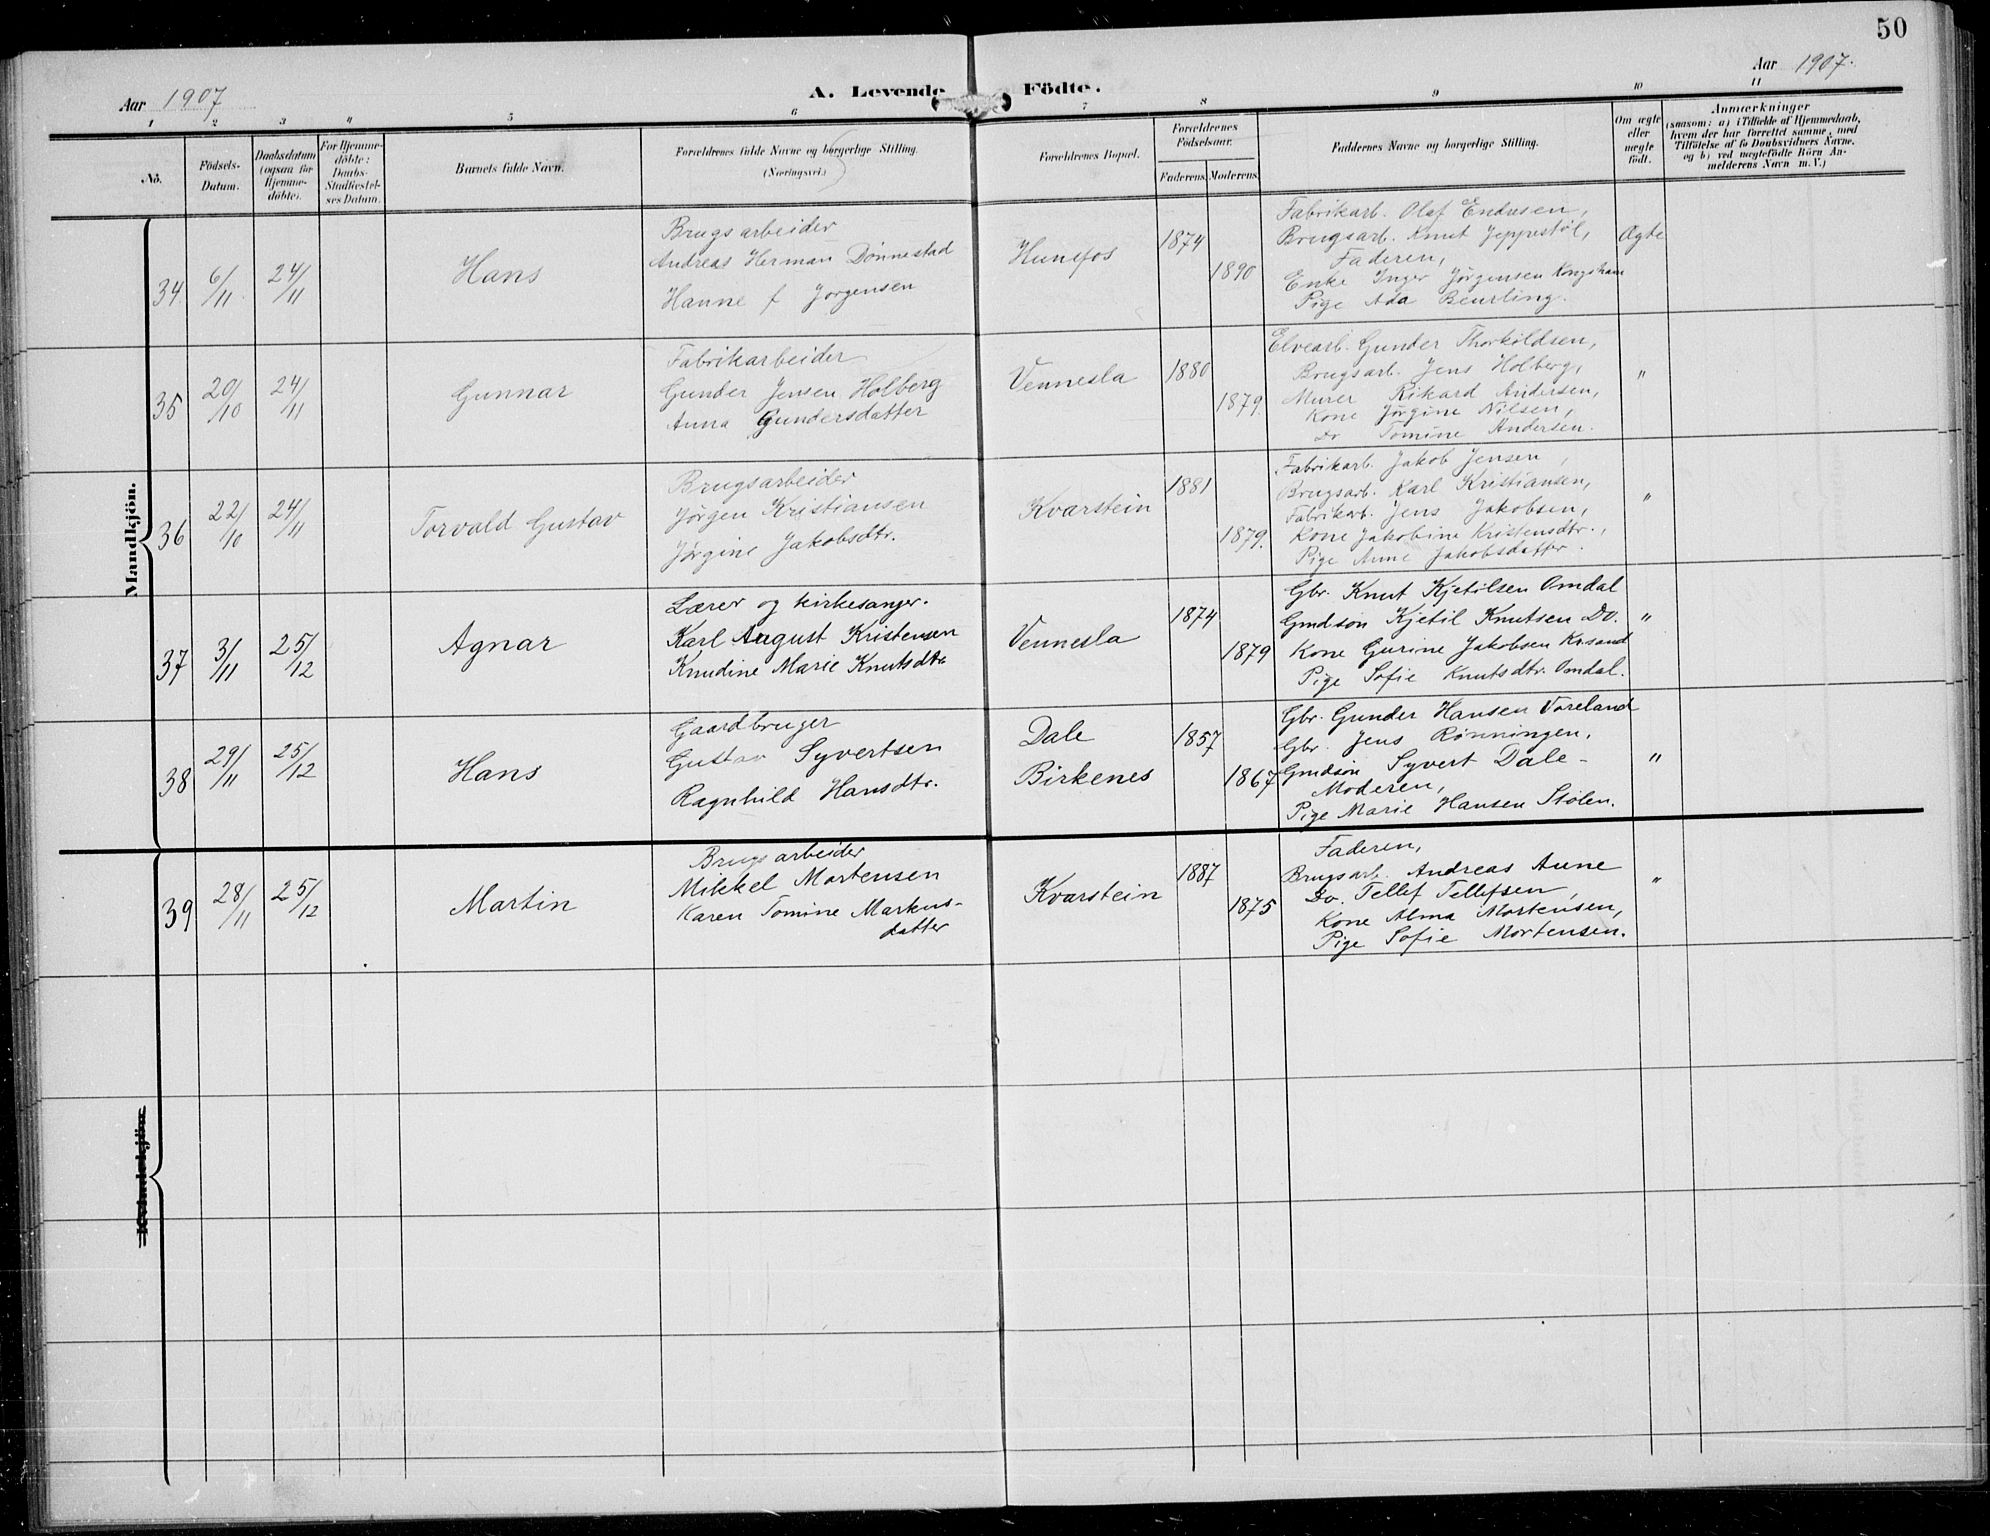 50
Aar 1907
A. Levende Födte.
Aar 1907.
1 2 3 4 5 6 7 8 9 10 11
No.
Födsels-
Datum.
Daabsdatum
(ogsaa for
Hjemme-
döbte).
For Hjemme-
döbte:
Daabs-
Stadfæstel-
ses Datum.
Barnets fulde Navn.
Forældrenes fulde Navne og borgerlige Stilling.
(Næringsvei.)
Forældrenes Bopæl.
Forældrenes
Födselsaar.
Faderens. Moderens.
Faddernes Navne og borgerlige Stilling.
Om ægte
eller
uægte
födt.
Anmærkninger
(saasom: a) i Tilfælde af Hjemmedaab,
hvem der har forrettet samme, med
Tilföielse af to Daabsvidners Navne,
og b) ved uægtefödte Börn An-
melderens Navn m. V.)
Mandkjön.
34. 6/11 24/11 Hans
Brugsarbeider
Andreas Herman Dønnestad
Hanne f Jørgensen
Hunefos
1874
1890
Fabrikarb. Olaf Endresen,
Brugsarb. Knut Jeppestøl,
Faderen,
Enke Inger Jørgensen Kongsham
Pige Ada Beurling.
Ægte
35 20/10 24/11 Gunnar
Fabrikarbeider
Gunder Jensen Holberg
Anna Gundersdatter
Vennesla
1880
1879
Elvearb. Gunder Thorkildsen,
Brugsarb. Jens Holberg,
Murer Rikard Andersen,
Kone Jørgine Nilsen,
Do Tomine Andersen.
"
36 22/10 24/11 Torvald Gustav
Brugsarbeider
Jørgen Kristiansen
Jørgine Jakobsdtr.
Kvarstein
1881
1879.
Fabrikarb. Jakob Jensen,
Brugsarb. Karl Kristiansen,
Fabrikarb. Jens Jakobsen,
Kone Jakobine Kristensdtr.,
Pige Anne Jakobsdatter.
"
37 3/11 25/12 Agnar
Lærer og kirkesanger.
Karl August Kristensen
Knudine Marie Knutsdtr
Vennesla
1874
1879
Gbr. Knut Kjetilsen Omdal
Gmdsøn Kjetil Knutsen Do.
Kone Gurine Jakobsen Krsand
Pige Sofie Knutsdtr. Omdal.
"
38 29/11 25/12 Hans
Gaardbruger
Gustav Syvertsen
Ragnhild Hansdtr.
Dale
Birkenes
1857
1867
Gbr. Gunder Hansen Voreland
Gbr. Jens Rønningen,
Gmdsøn Syvert Dale -
Moderen,
Pige Marie Hansen Stølen.
"
39 28/11 25/12 Martin
Brugsarbeider
Mikkel Mortensen
Karen Tomine Markus-
datter
Kvarstein
1887
1875
Faderen,
Brugsarb. Andreas Aune
Do. Tellef Tellefsen,
Kone Alma Mortensen,
Pige Sofie Mortensen.
"
Kvindekjön.